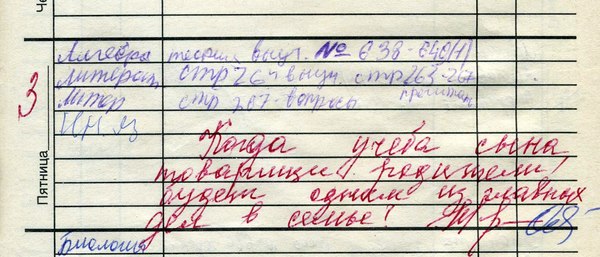 Че
Алгебра теория выуч. № 638-640(1)
Литерат стр 264 выуч. стр 263-267
Литер стр 267-вопросы прочитать
Ин яз
3
Пятница
Когда учеба сына,
товарищи родители,
будет одним из главных
дел в семье!
Биология